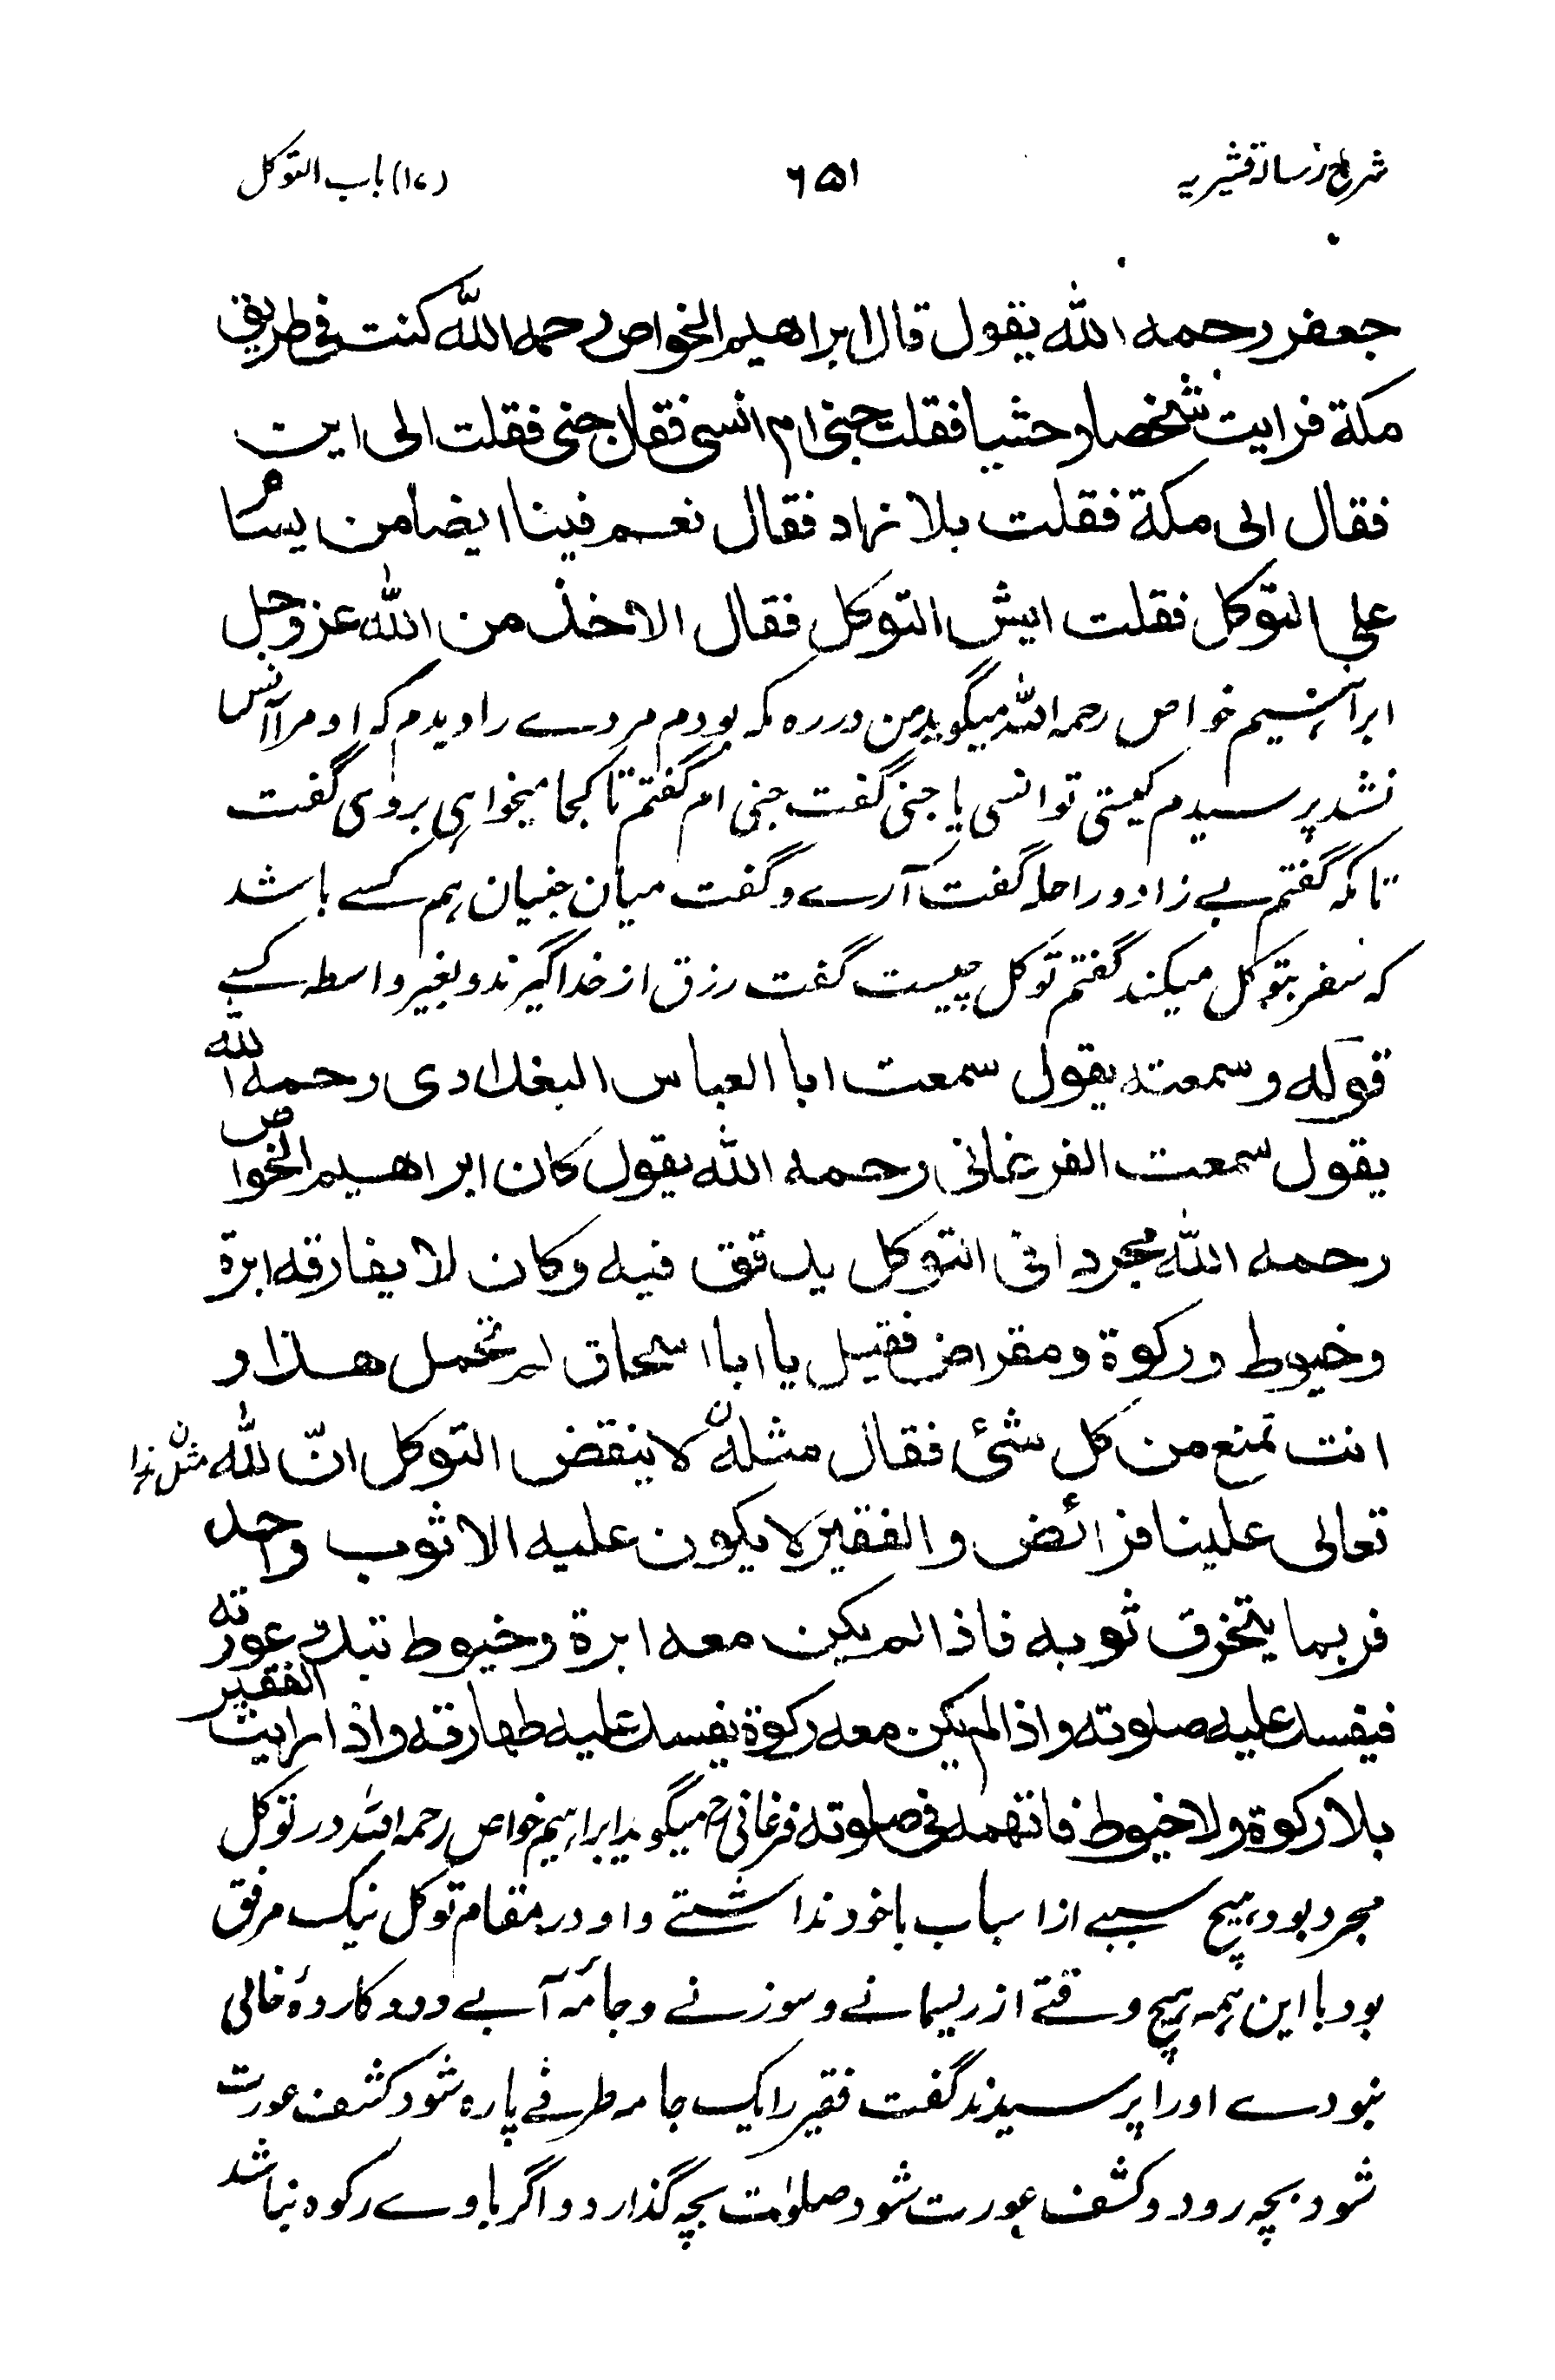 شرح رسالۂ قشیریہ ۶۵۱ (۱۷) باب التوکل
جعفر رحمه الله يقول قال ابراهيم الخواص رحمه الله كنت فى طريق
مكة فرايت شخصا وحشيا فقلت جنى ام انسى فقال جنى فقلت الى اين
فقال الى مكة فقلت بلا زاد فقال نعم فينا ايضا من يسافر
على التوكل فقلت ايش التوكل فقال الاخذ من الله عز وجل
ابراہیم خواص رحمہ اللہ میگوید من در رہ مکہ بودم مردے را دیدم کہ او مرا آنس
نشد پرسیدم کیستی تو انسی یا جنی گفت جنی ام گفتم تا کجا میخواہی بروی گفت
تا مکہ گفتم بے زاد و راحلہ گفت آرے و گفت میان جنیان ہم کسے باشد
کہ سفر بتوکل میکند گفتم توکل چیست گفت رزق از خدا گیرند و بغیر واسطہ کسے
قوله وسمعته يقول سمعت ابا العباس البغدادى رحمه الله
يقول سمعت الفرغانى رحمه الله يقول كان ابراهيم الخواص
رحمه الله مجردا فى التوكل يدقق فيه وكان لا يفارقه ابرة
وخيوط وركوة ومقراض فقيل يا ابا اسحاق لم تحمل هذا و
انت تمنع من كل شئ فقال مثله لا ينقض التوكل انّ لله مثل ہذا
تعالى علينا فرائض والفقير لا يكون عليه الا ثوب واحد
فربما يتخرق ثوبه فاذا لم يكن معه ابرة وخيوط تبدو عورته
فيفسد عليه صلوته واذا لم يكن معه ركوة يفسد عليه طهارته واذا رايت الفقير
بلا ركوة ولا خيوط فاتهمه فى صلوته فرغانی رح میگوید ابراہیم خواص رحمہ اللہ در توکل
مجرد بود ہیچ سببے از اسباب با خود نداشتے و او در مقام توکل نیک مرفق
بود با این ہمہ ہیچ وقتے از ریسمانے و سوزنے و جامۂ آبے و دو کاردۂ خالی
نبودے او را پرسیدند گفت فقیر را یک جامہ طرفے پارہ شود کشف عورت
شود بچہ رود و کشف عورت شود صلوات بچہ گذارد و اگر با وے رکوہ نباشد